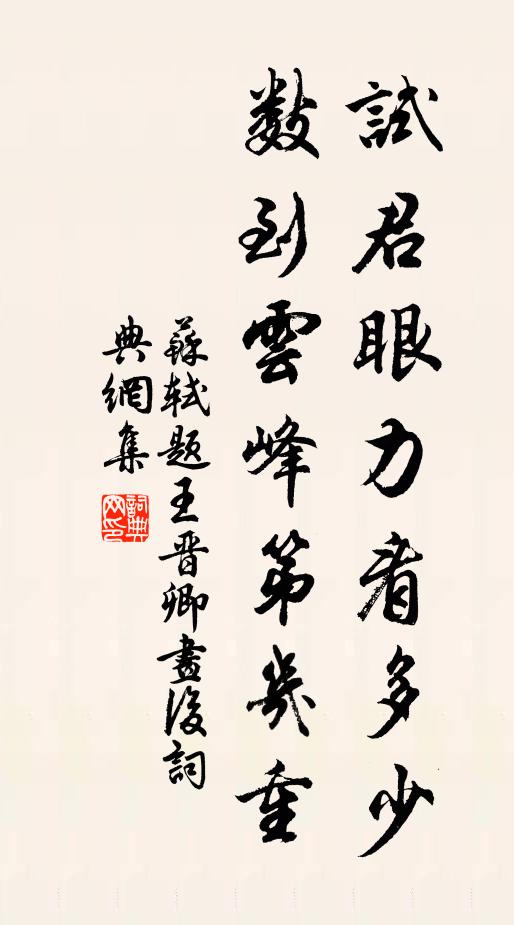 試君眼力看多少
數到雲峰第幾重
蘇軾題王晋卿畫後詞
典網集
詞典網印